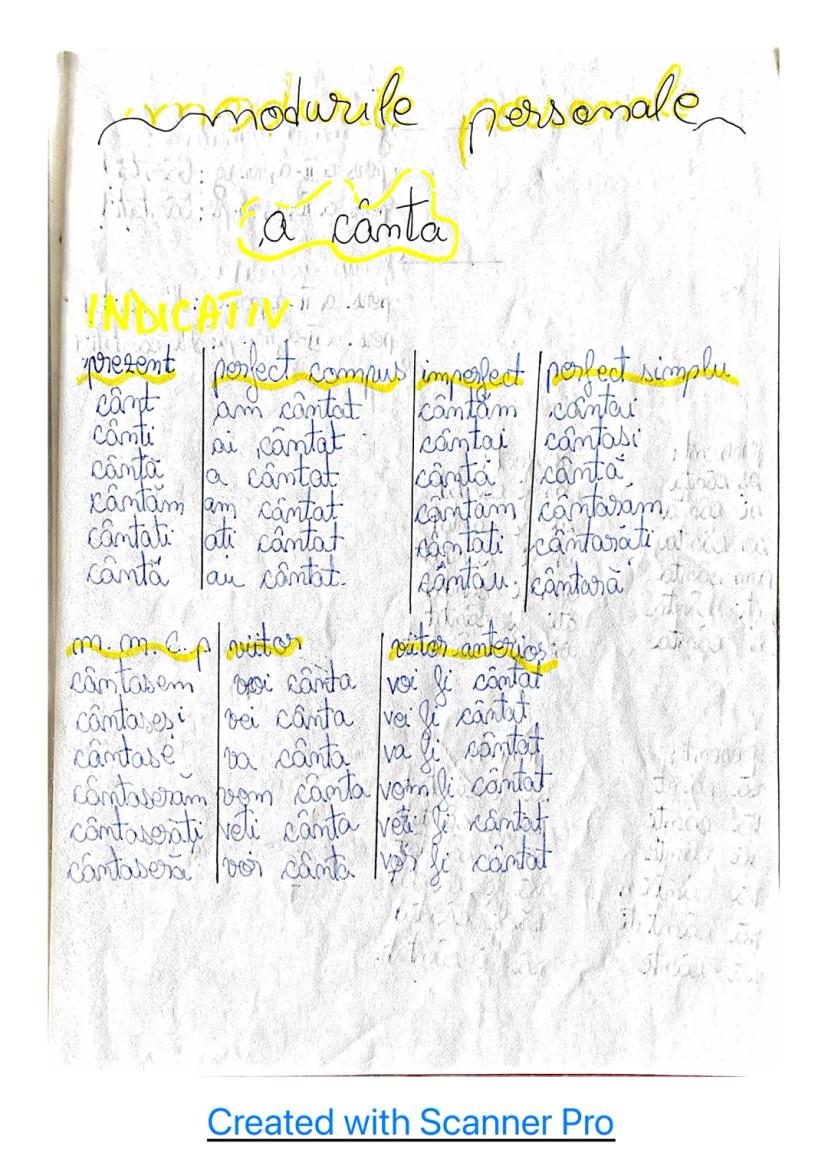 modurile personale
a cânta
INDICATIV
prezent perfect compus imperfect perfect simplu
cânt am cântat cântam cântai
cânti ai cântat cântai cântasi
cântă a cântat cânta cântă
cântăm am cântat cântam cântaram
cântati ati cântat cântati cântarăti
cântă au cântat. cântau cântară
m. m. c. p viitor viitor anterior
cântasem voi cânta voi fi cântat
cântasesi vei cânta vei fi cântat
cântase va cânta va fi cântat
cântaserăm vom cânta vom fi cântat
cântaserăți veti cânta veti fi cântat
cântaseră vor cânta vor fi cântat
Created with Scanner Pro